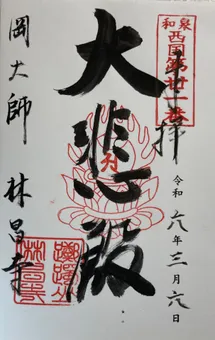 奉拝
和泉
西国第廿一番
大悲殿
令和六年三月六日
岡大師 林昌寺
躑躅山
林昌寺